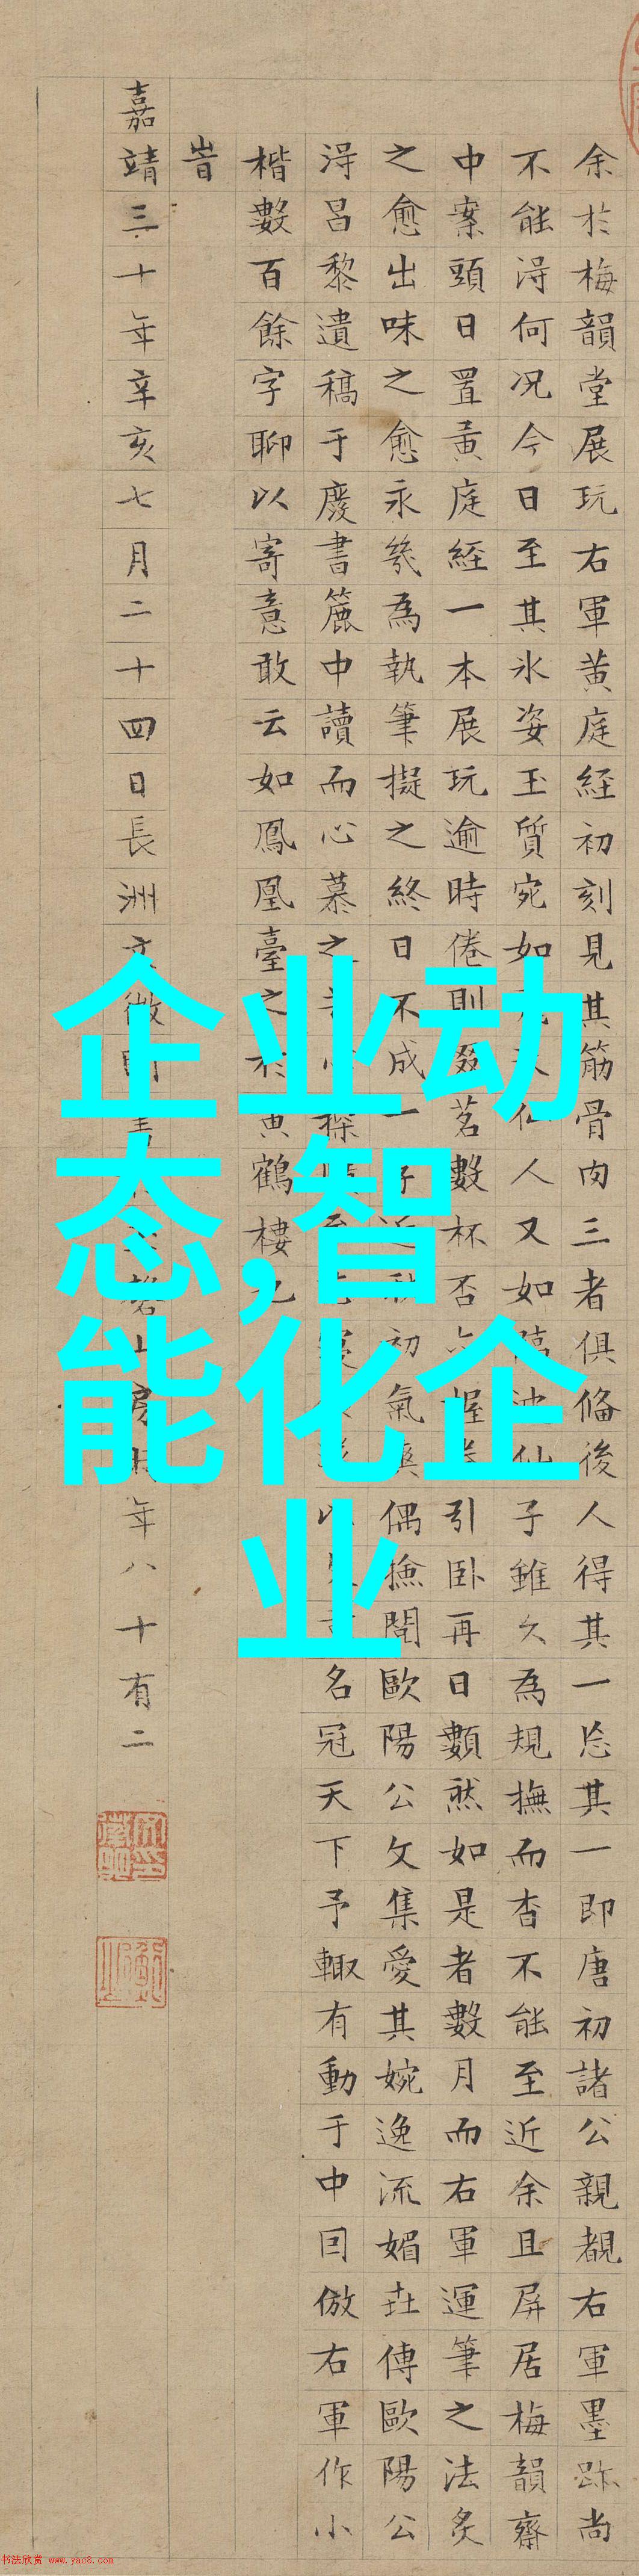 余於梅韻堂展玩右軍黄庭経初刻見其筋骨肉三者俱俻後人得其一忘其一即唐初諸公親覩右軍墨跡尚
不能淂何况今日至其氷姿玉質宛如仙人又如仙子雖久為規撫而杳不能至近余且屏居梅韻齋
中案頭日置黄庭経一本展玩逾時倦則啜茗數杯否引卧再日數然如是者數月而右軍運筆之法炙
之愈出味之愈永幾為執筆擬之終日不成一字近初氣爽偶撿閲歐陽公文集愛其婉逸流媚𡊮傅歐陽公
淂昌黎遺稿于廢書簏中讀而心慕之名冠天下予輙有動于中囙倣右軍作小
楷數百餘字聊以寄意敢云如鳳凰臺之於黄鶴樓
旹
嘉靖三十年辛亥七月二十四日長洲文徵明年八十有二
企业动
态,智
能化企
业
书法欣赏 www.yac8.com